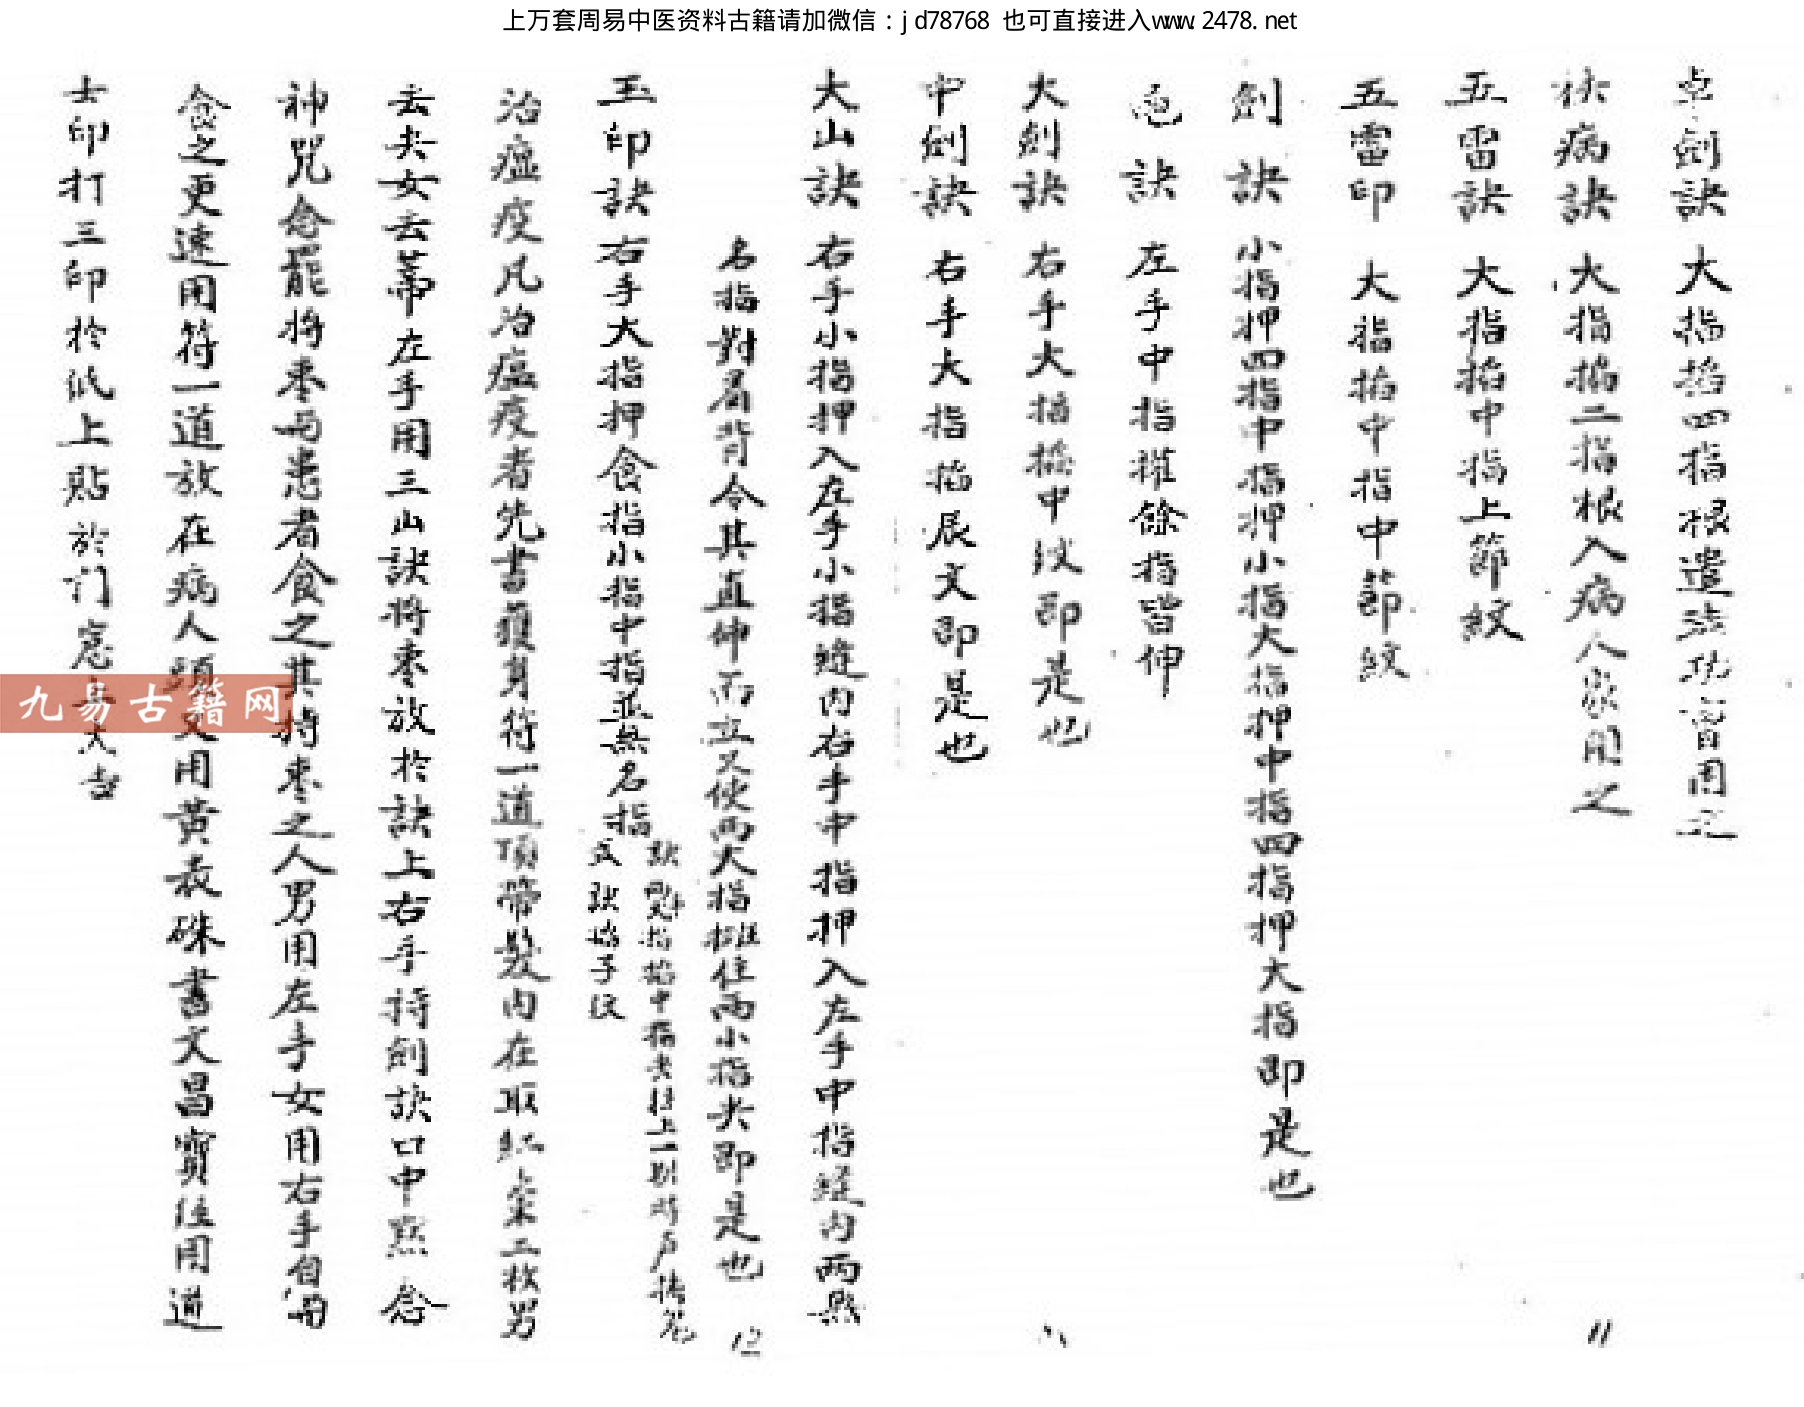 上万套周易中医资料古籍请加微信：jd78768 也可直接进入www.2478.net
卓劍訣 大指掐四指根遣法功曹用之
扶病訣 大指掐二指根入病人家用之
五雷訣 大指掐中指上節紋
五雷印 大指掐中指中節紋
劍訣 小指押四指中指押小指大指押中指四指押大指即是也
訣 左手中指握餘指皆伸
大劍訣 右手大指掐中紋即是也
中劍訣 右手大指掐辰文即是也
大山訣 右手小指押入左手小指縫内右手中指押入左手中指縫内兩無
名指對眉背令其直伸而立又使兩大指捱住兩小指尖即是也
玉印訣 右手大指押食指小指中指並無名指
治瘟疫凡治瘟疫者先書護身符一道頂帶髮内在取紅棗二枚男
去夫女去蒂左手用三山訣將棗放於訣上右手持劍訣口中默念
神咒念罷將棗與患者食之其持棗之人男用左手女用右手自
念之更速用符一道放在病人頭又用黃表硃書文昌寶
印打三印於紙上貼於门窓上大吉
九易古籍网
11
12